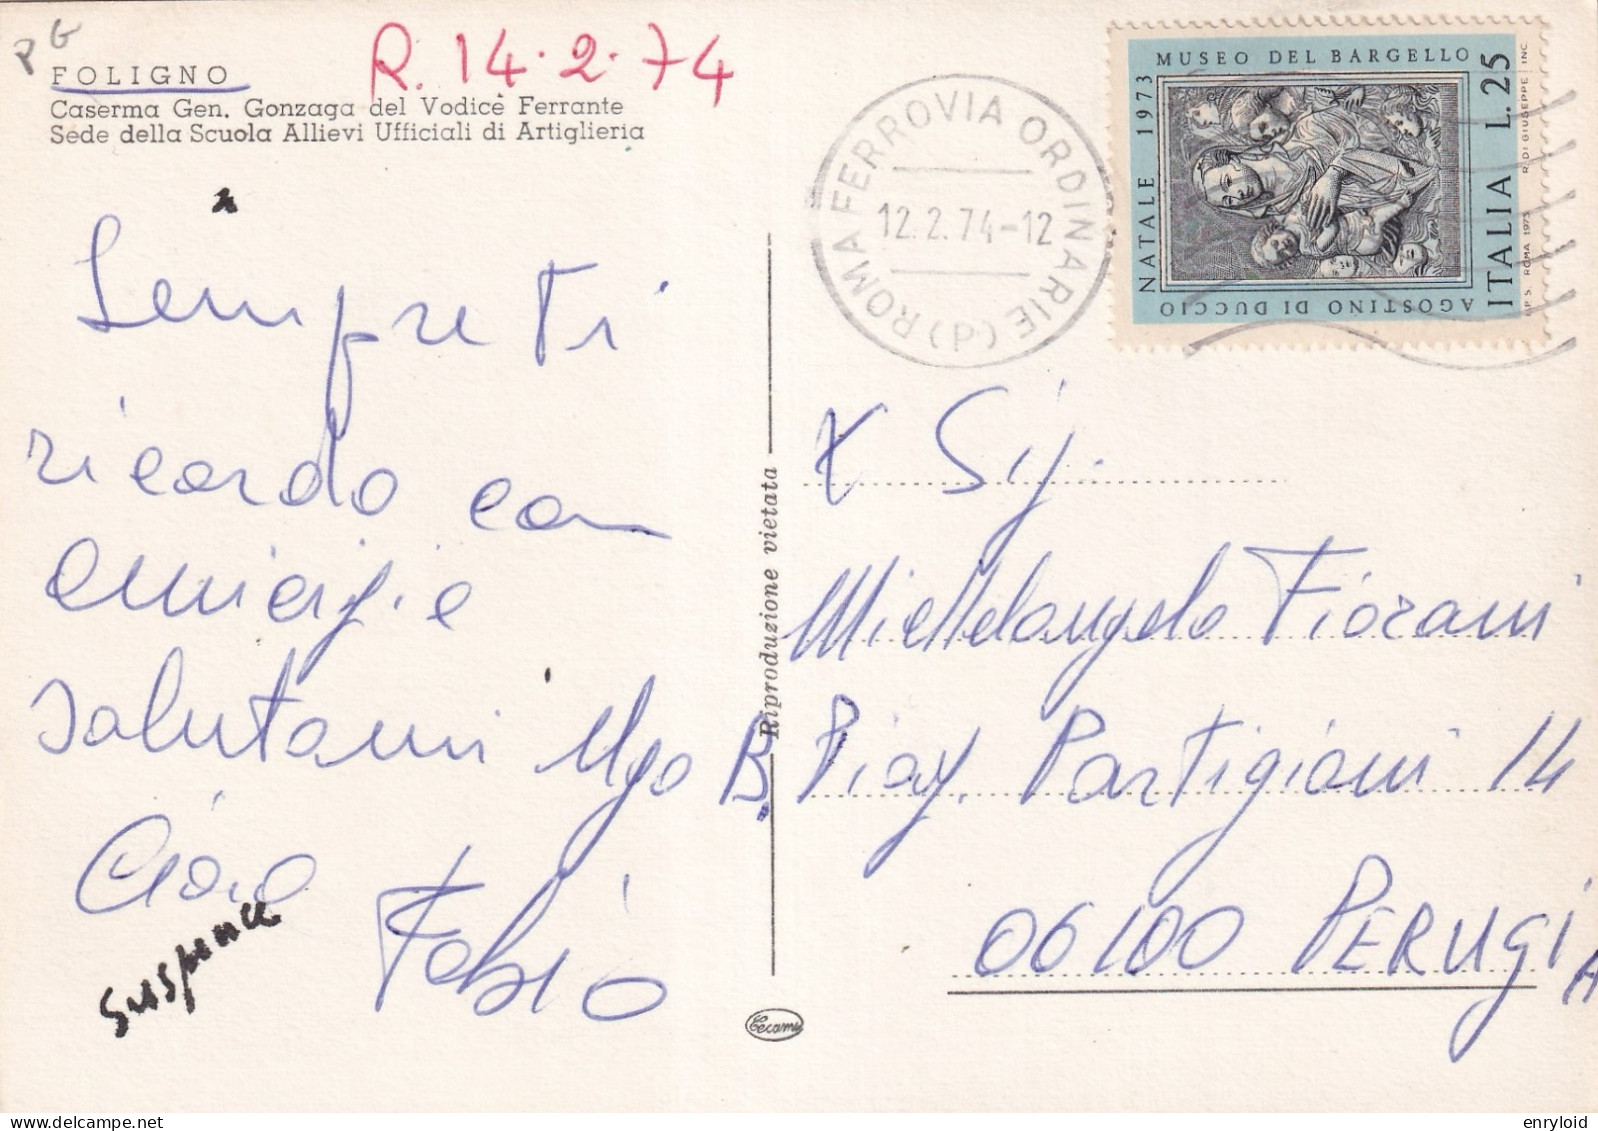 PG
FOLIGNO
R. 14.2.74
Caserma Gen. Gonzaga del Vodice Ferrante
Sede della Scuola Allievi Ufficiali di Artiglieria
ROMA FERROVIA ORDINARIE (P)
12.2.74-12
MUSEO DEL BARGELLO
NATALE 1973
AGOSTINO DI DUCCIO
ITALIA L.25
I.P.S. ROMA 1973 R. DI GIUSEPPE INC.
Sempre ti
ricordo con
amicizie
salutami Ugo B.
Ciao
Fabio
suspence
Riproduzione vietata
Cecami
X Sig.
Michelangelo Fiorani
Piaz. Partigiani 14
06100 PERUGIA
enryloid
delcampe.net